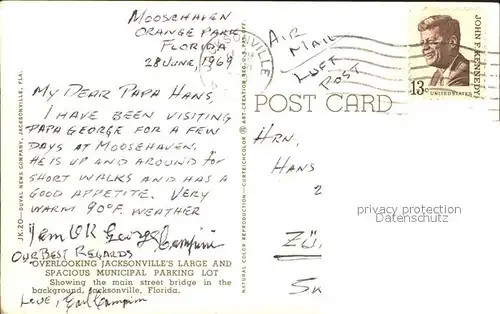 MOOSEHAVEN
ORANGE PARK
FLORIDA
28 JUNE, 1969
MY DEAR PAPA HANS,
I HAVE BEEN VISITING
PAPA GEORGE FOR A FEW
DAYS AT MOOSEHAVEN.
HE IS UP AND AROUND FOR
SHORT WALKS AND HAS A
GOOD APPETITE. VERY
WARM 90°F. WEATHER
I am OK George
OUR BEST REGARDS
OVERLOOKING JACKSONVILLE'S LARGE AND
SPACIOUS MUNICIPAL PARKING LOT
Showing the main street bridge in the
background, Jacksonville, Florida.
LOVE, Earl
JK.20—DUVAL NEWS COMPANY, JACKSONVILLE, FLA.
NATURAL COLOR REPRODUCTION—CURTEICHCOLOR ® ART-CREATION REG. U.S. PAT. OFF.
AIR
MAIL
LUFT
POST
JOHN F. KENNEDY
13c
UNITED STATES
POST CARD
HRN,
HANS
2
privacy protection
Datenschutz
ZÜ.